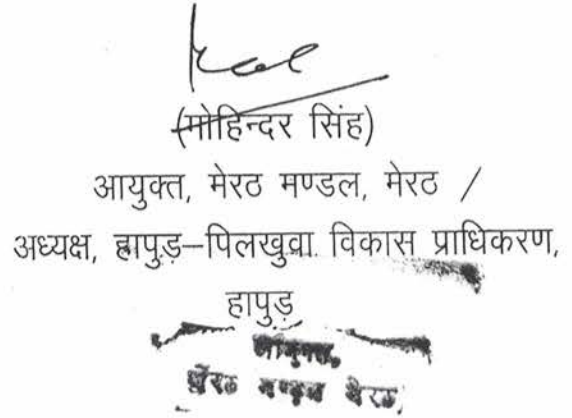 (मोहिन्दर सिंह)
आयुक्त, मेरठ मण्डल, मेरठ /
अध्यक्ष, हापुड़–पिलखुवा विकास प्राधिकरण,
हापुड़
आयुक्त,
मेरठ मण्डल मेरठ